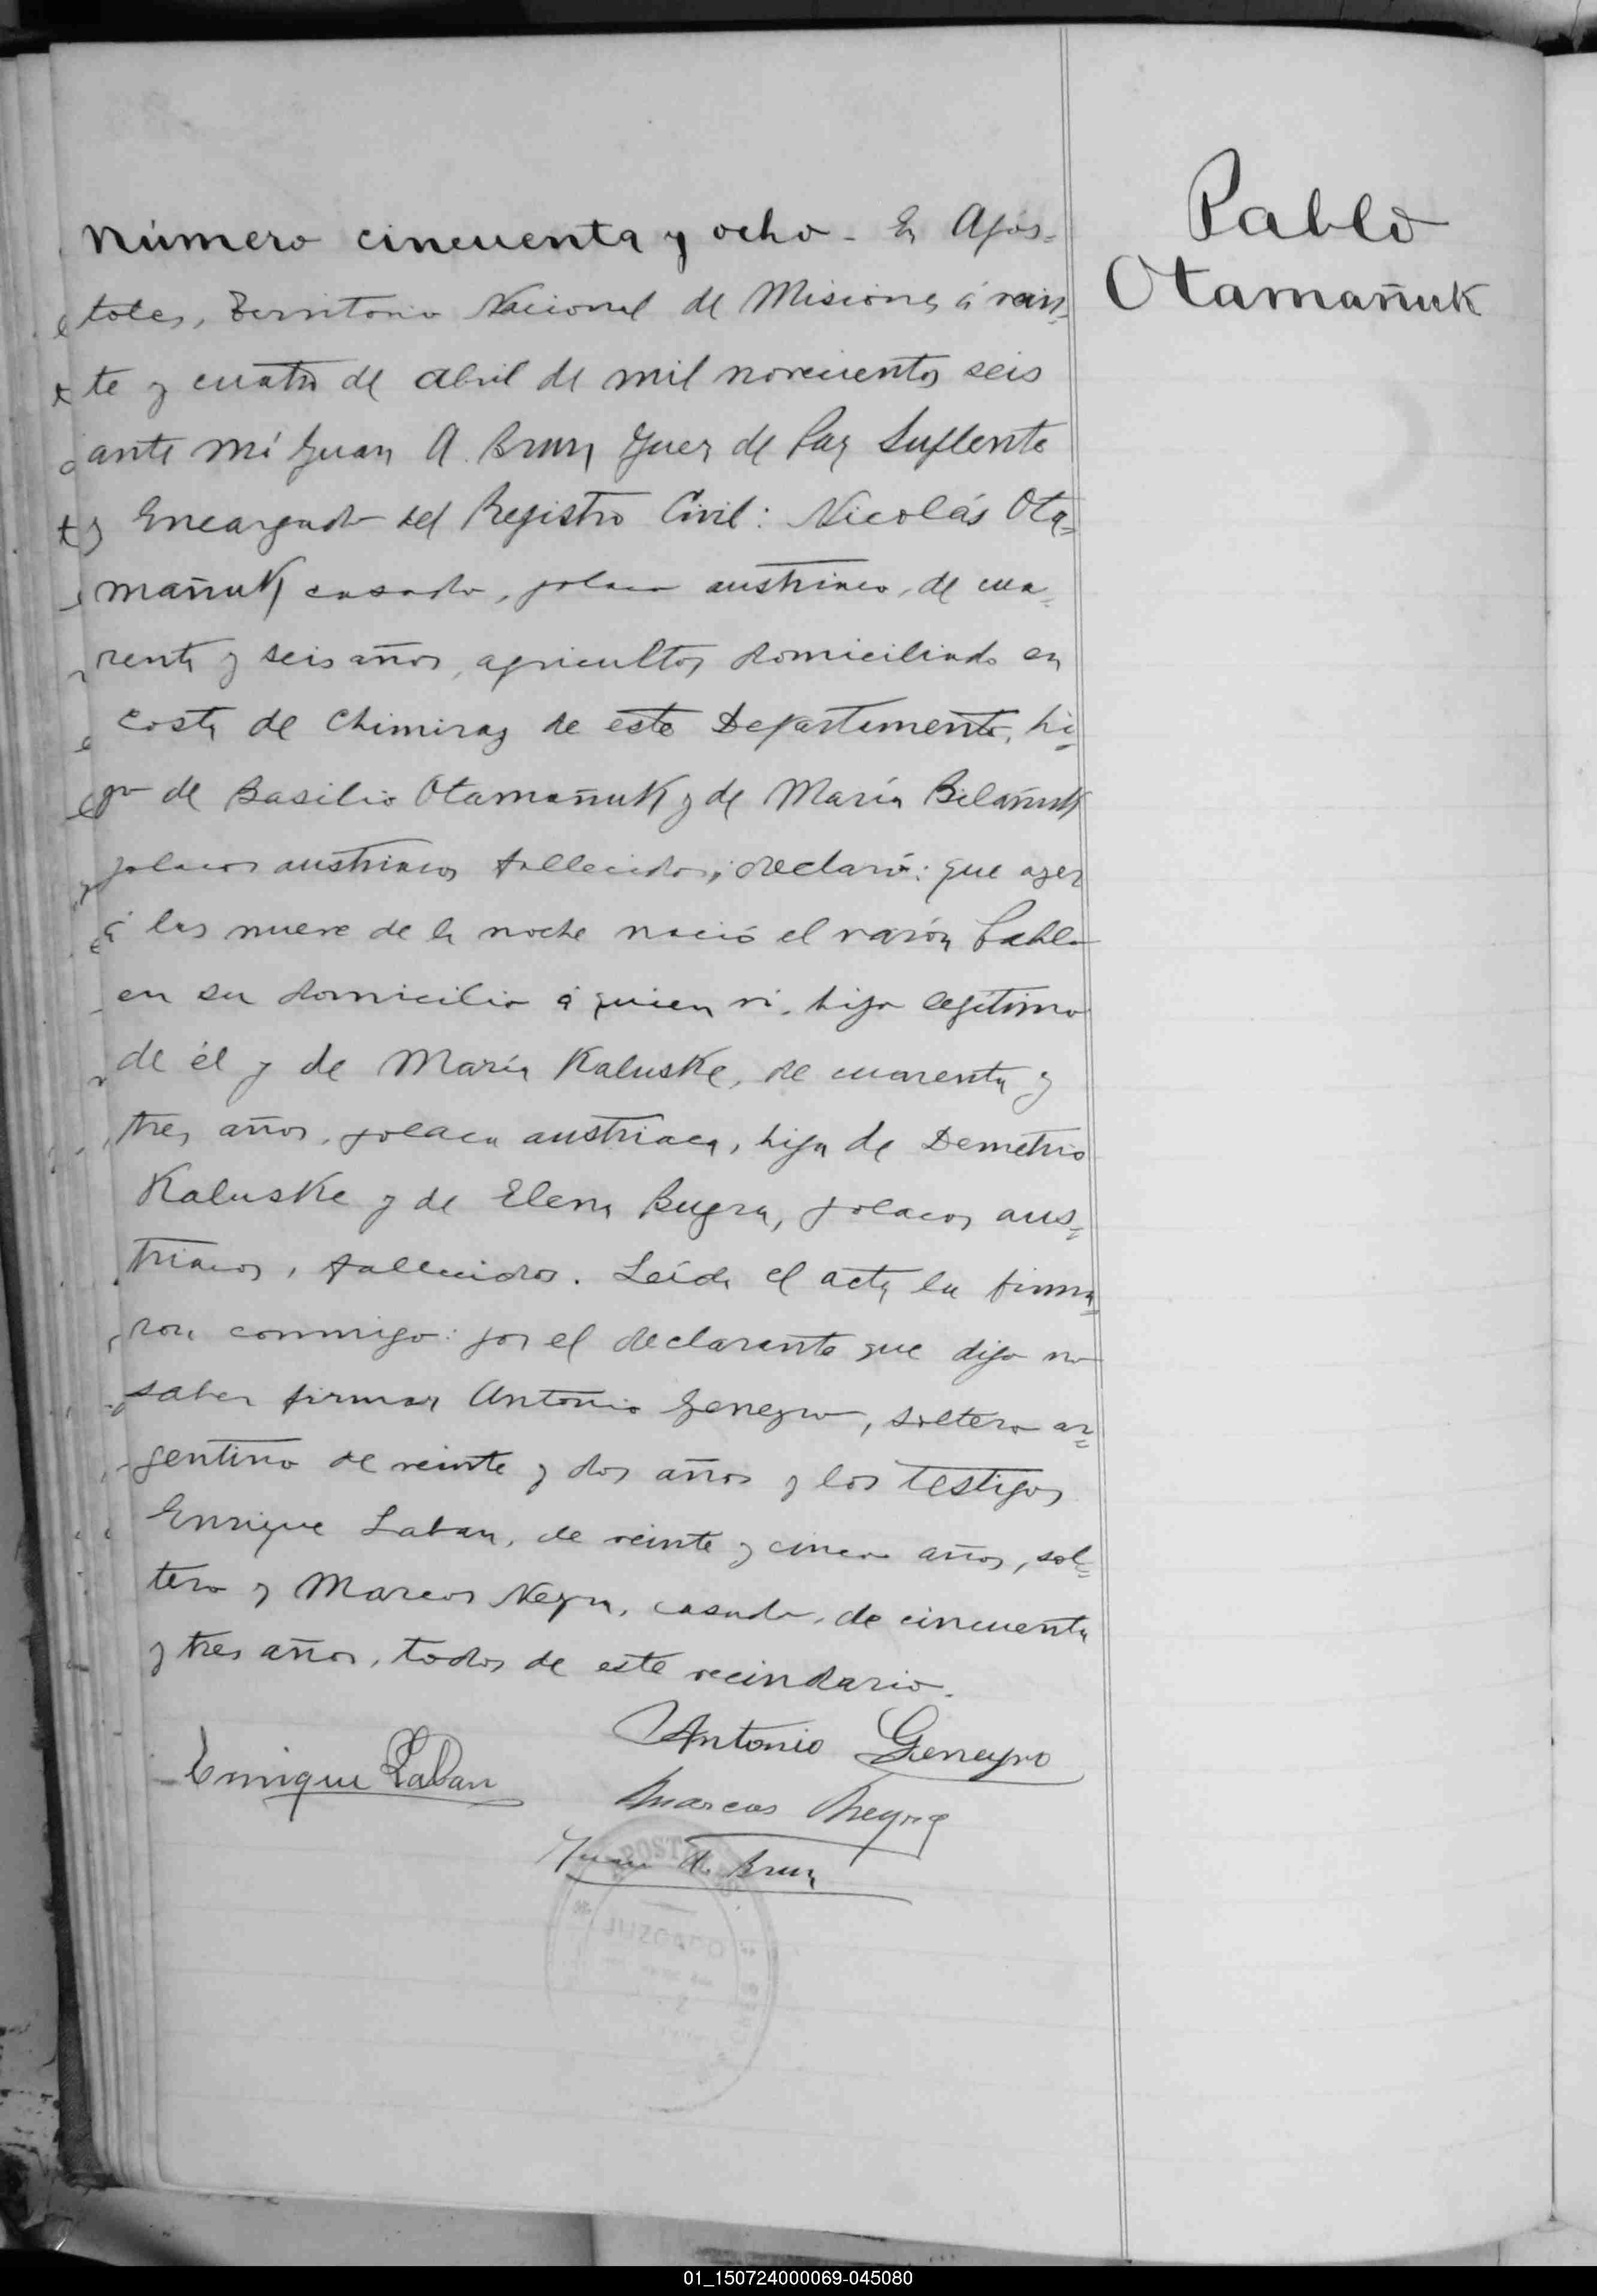 Número cincuenta y ocho - En Após=
toles, Territorio Nacional de Misiones á vein=
te y cuatro de Abril de mil novecientos seis
ante mí Juan A. Brun Juez de Paz Suplente
y Encargado del Registro Civil: Nicolás Ota=
mañuk casado, polaco austriaco, de cua=
renta y seis años, agricultor domiciliado en
costa de Chimiray de este Departamento, hi=
jo de Basilio Otamañuk y de María Bilañuk
polacos austriacos fallecidos; declaró: que ayer
á las nueve de la noche nació el varón Pablo
en su domicilio á quien vi, hijo legítimo
de él y de María Kaluske, de cuarenta y
tres años, polaca austriaca, hija de Demetrio
Kaluske y de Elena Bugra, polacos aus=
triacos, fallecidos. Leída el acta la firma=
ron conmigo: por el declarante que dijo no
saber firmar Antonio Geneyro, soltero ar=
gentino de veinte y dos años y los testigos
Enrique Laban, de veinte y cinco años, sol=
tero y Marcos Neyra, casado, de cincuenta
y tres años, todos de este vecindario.
Antonio Geneyro
Enrique Laban
Marcos Neyra
Juan A. Brun
JUZGADO
Pablo
Otamañuk
01_150724000069-045080